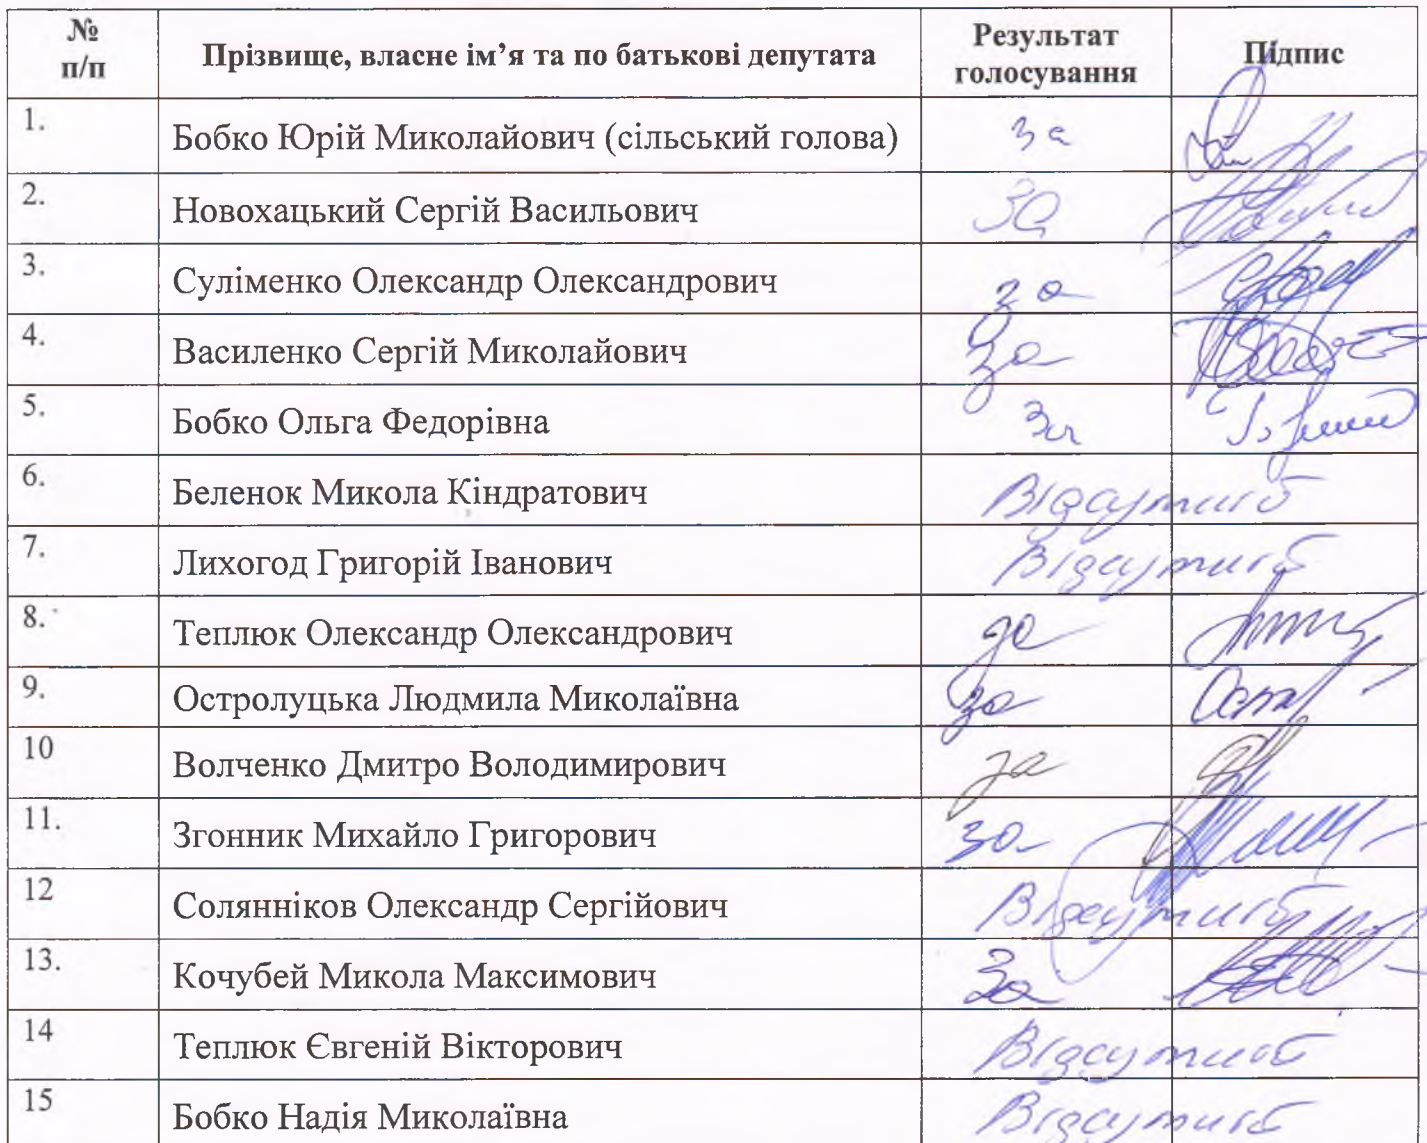 № п/п Прізвище, власне ім’я та по батькові депутата Результат голосування Підпис
1. Бобко Юрій Миколайович (сільський голова) за
2. Новохацький Сергій Васильович за
3. Суліменко Олександр Олександрович за
4. Василенко Сергій Миколайович за
5. Бобко Ольга Федорівна за
6. Беленок Микола Кіндратович Відсутній
7. Лихогод Григорій Іванович Відсутній
8. Теплюк Олександр Олександрович за
9. Остролуцька Людмила Миколаївна за
10 Волченко Дмитро Володимирович за
11. Згонник Михайло Григорович за
12 Солянніков Олександр Сергійович Відсутній
13. Кочубей Микола Максимович за
14 Теплюк Євгеній Вікторович Відсутній
15 Бобко Надія Миколаївна Відсутній